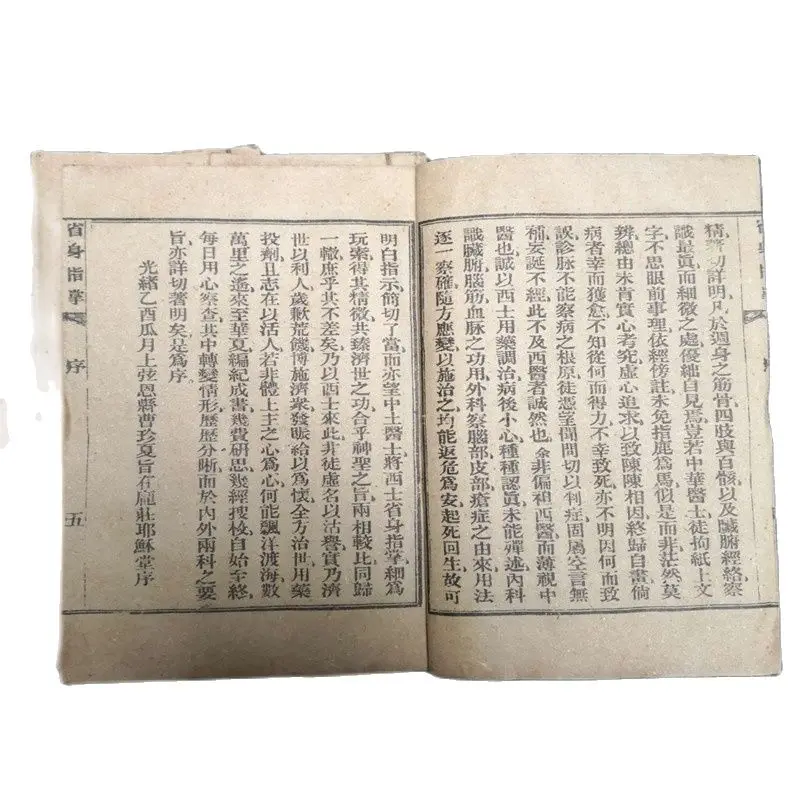 精詳切詳明凡於週身之筋骨四肢與百骸以及臟腑經絡察
識最眞而細微之處優絀自見焉豈若中華醫士徒拘紙上文
字不思眼前事理依經傍註未免指鹿爲馬似是而非茫然莫
辨總由未肯實心考究虛心追求以致陳陳相因終歸自當倘
病者幸而獲愈不知從何而得力不幸致死亦不明因何而致
誤診脉不能察病之根原徒憑望聞問切以判症固屬空言無
補妄誕不經此不及西醫者誠然也余非偏袒西醫而薄視中
醫也誠以西士用藥調治病後小心種種認眞未能殫述內科
識臟腑腦筋血脉之功用外科察腦部皮部瘡症之由來用法
逐一察確隨方應變以施治之均能返危爲安起死回生故可
省身指掌
序
五
明白指示簡切了當而亦望中土醫士將西士省身指掌細爲
玩索得其精微共臻濟世之功合乎神聖之旨兩相較比同歸
一轍庶乎其不差矣乃以西士來此非徒虛名以沽譽實乃濟
世以利人歲歉荒饑博施濟衆發賑給以爲懷全方治世用藥
投劑且志在以活人若非體上主之心爲心何能飄洋渡海數
萬里之遙來至華夏編紀成書幾費研思幾經搜檢自始至終
每日用心察查其中轉變情形歷歷分晰而於內外兩科之要
旨亦詳切著明矣是爲序
光緒乙酉瓜月上弦恩縣曹珍夏旨在龐莊耶穌堂序